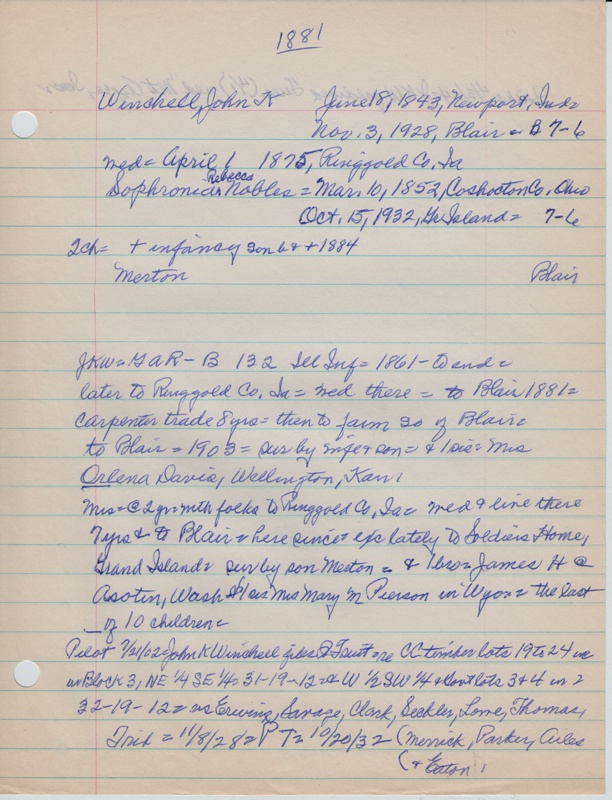 1881
Winchell, John K June 18, 1843, Newport, Ind=
Nov. 3, 1928, Blair = B 7-6
med = April 1 1875, Ringgold Co, Ia
Rebecca
Sophronia Nobles = Mar. 10, 1852, Coshocton Co, Ohio
Oct. 15, 1932, Gr Island = 7-6
2ch = + infancy son b & + 1884
Merton Blair
JKW = GAR - B 132 Ill Inf = 1861 - to end =
later to Ringgold Co, Ia = med there = to Blair 1881 =
carpenter trade 8 yrs = then to farm so of Blair =
to Blair = 1903 = sur by wife & son = & 1 sis = Mrs
Orlena Davis, Wellington, Kan
Mrs = @ 2 yr = mth folks to Ringgold Co, Ia = med & live there
7 yrs & to Blair = here since = exc lately to Soldiers Home,
Grand Island = sur by son Merton = & 1 bro = James H @
Asotin, Wash & 1 sis Mrs Mary M Pierson in Wyo = = the last
of 10 children =
Pilot 7/21/02 = John K Winchell = re CC timber lots 19 to 24 inc
in Block 3, NE 1/4 SE 1/4 = 31-19-12 = & W 1/2 SW 1/4 & Govt lots 3 & 4 in =
32-19-12 = vs Erwing, Savage, Clark, Seckler, Lowe, Thomas,
Trib = 11/8/28 = P T = 10/20/32 (Merrick, Parker, Ailes
(& Eaton